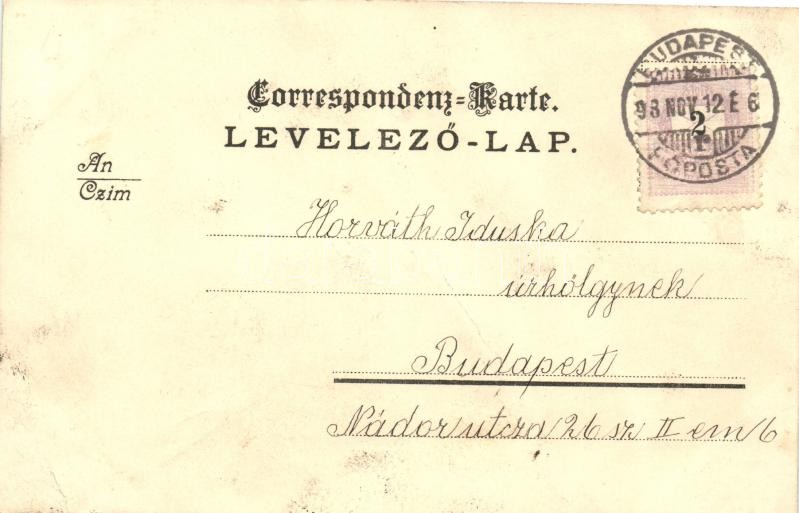 BUDAPEST
98 NOV. 12 É 6
FŐPOSTA
2
Correspondenz=Karte.
LEVELEZŐ-LAP.
An
Czim
Horváth Iduska
úrhölgynek
Budapest
Nádor utcza 26 sz. II em 6